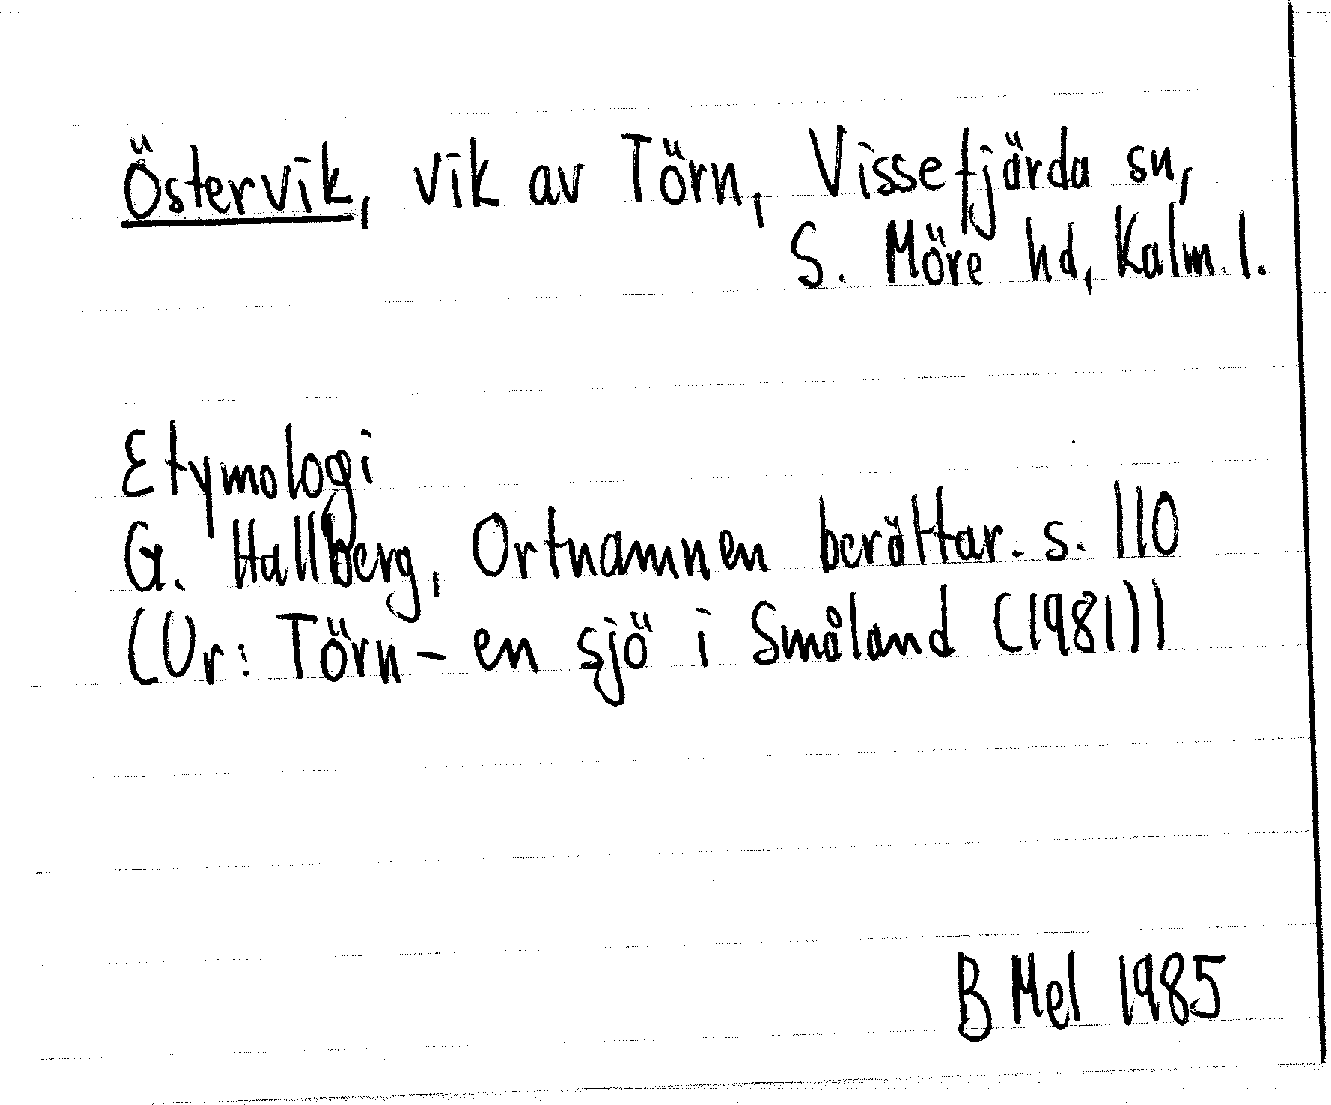 Östervik, vik av Törn, Vissefjärda sn,
S. Möre hd, Kalm. l.
Etymologi
G. Hallberg, Ortnamnen berättar. s. 110
(Ur: Törn - en sjö i Småland (1981))
B Mel 1985